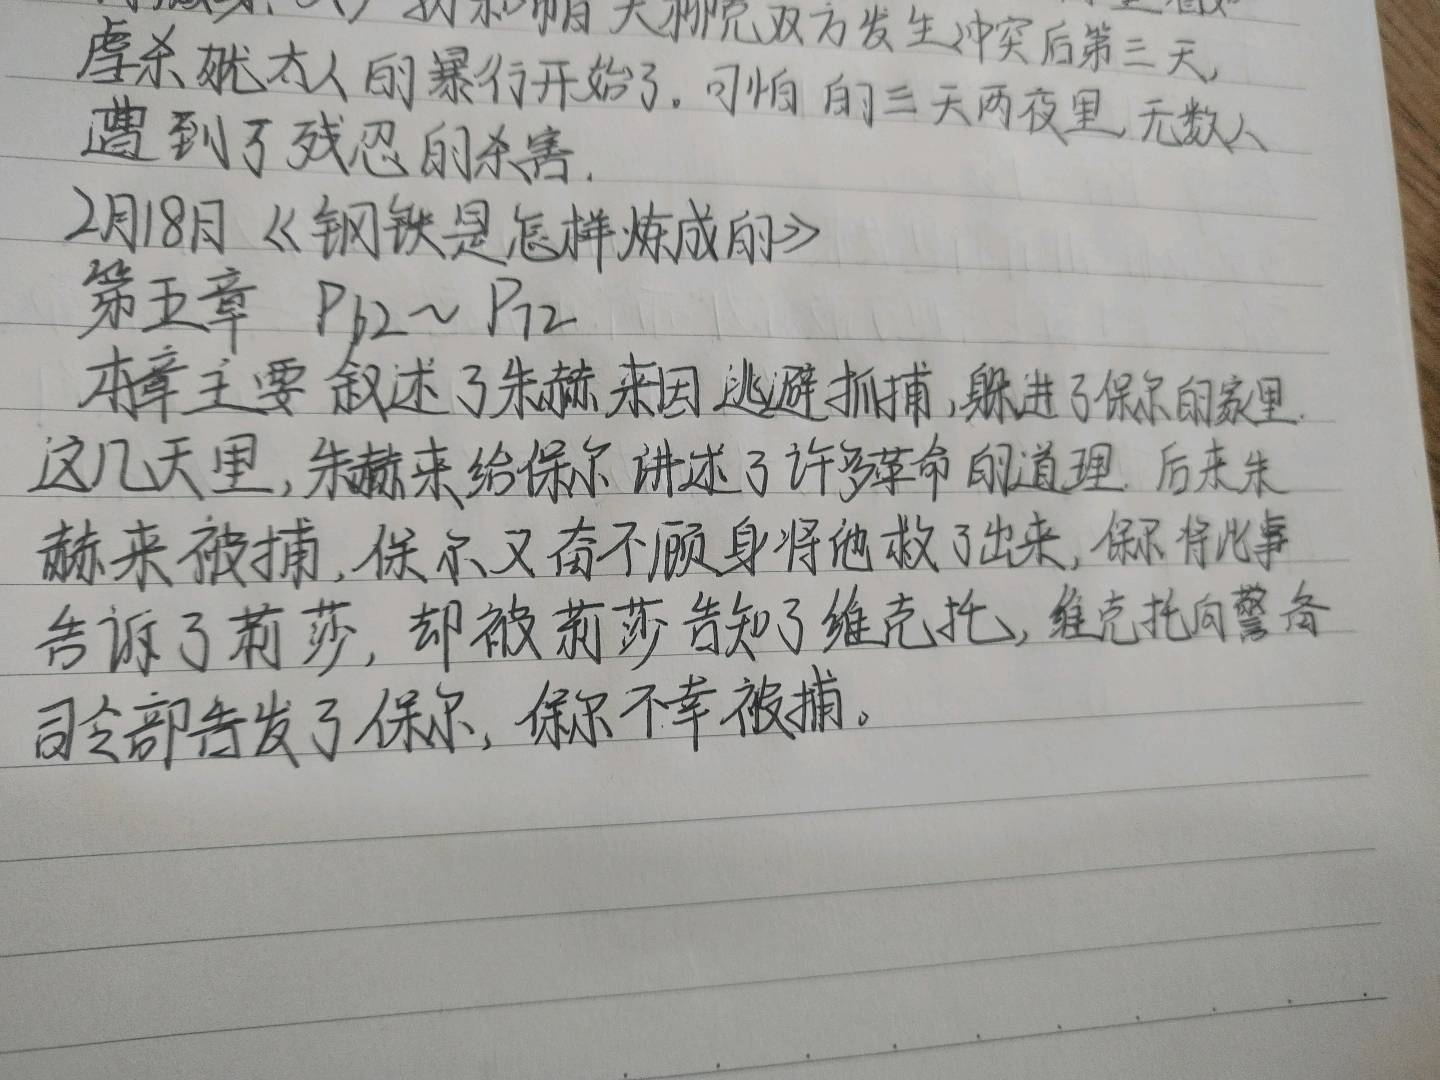 和帕夫柳克双方发生冲突后第三天,
虐杀犹太人的暴行开始了。可怕的三天两夜里,无数人
遭到了残忍的杀害.
2月18日《钢铁是怎样炼成的》
第五章 P62～P72
本章主要叙述了朱赫来因逃避抓捕,躲进了保尔的家里.
这几天里,朱赫来给保尔讲述了许多革命的道理.后来朱
赫来被捕,保尔又奋不顾身将他救了出来,保尔将此事
告诉了莉莎,却被莉莎告知了维克托,维克托向警备
司令部告发了保尔,保尔不幸被捕。